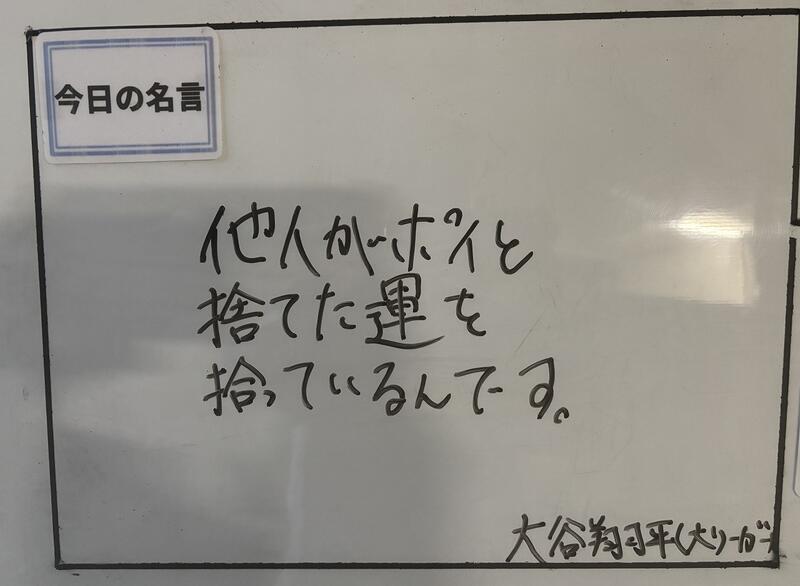 今日の名言
他人がポイと
捨てた運を
拾っているんです。
大谷翔平(大リーガー